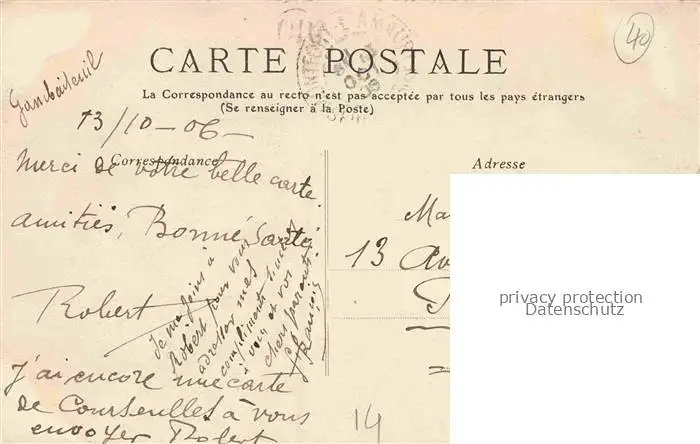 CARTE POSTALE
La Correspondance au recto n'est pas acceptée par tous les pays étrangers
(Se renseigner à la Poste)
13/10-06-
Correspondance
Merci de votre belle carte
amitiés, Bonne Santé
Robert
Je me joins à
Robert pour vous
adresser mes
compliments
à vous et vos
chers parents
François
J'ai encore une carte
de Courseulles à vous
envoyer Robert
Adresse
Ma
13 Av
14
40
privacy protection
Datenschutz